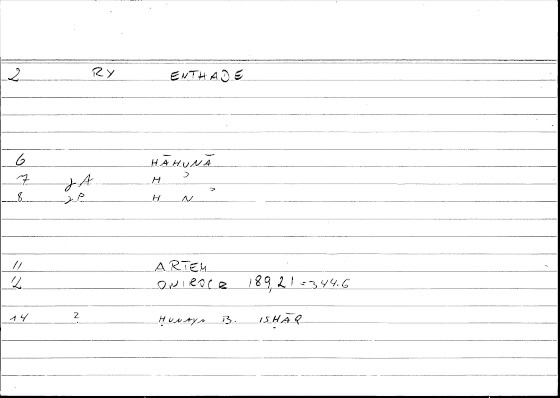 2 RY ENTHADE
6 HĀHUNĀ
7 JA H ?
8 JP H N ?
11 ARTEM
12 ONIROCR 189,21 = 344.6
14 ? ḤUNAYN B. ISḤĀQ